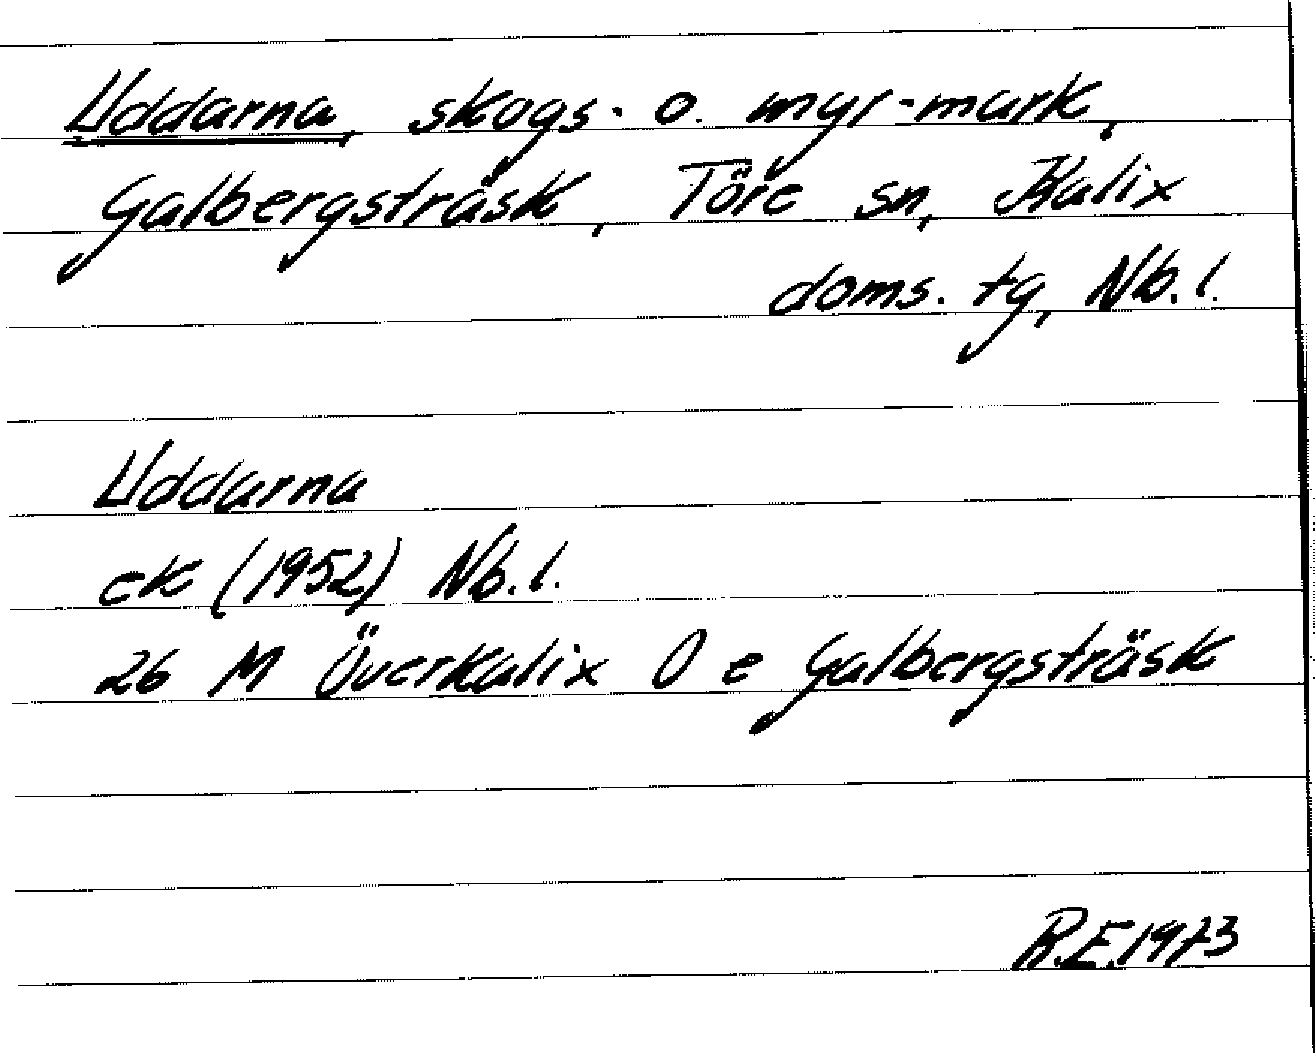 Uddarna, skogs- o. myr-mark,
Galbergsträsk, Töre sn, Kalix
doms. tg, Nb.l.
Uddarna
ek (1952) Nb.l.
26 M Överkalix O e Galbergsträsk
R.E.1973